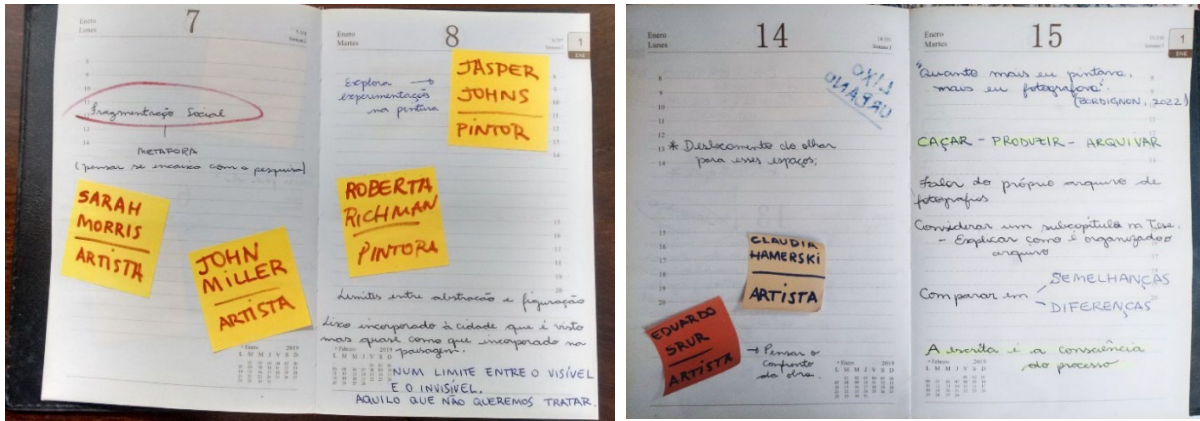 7
Enero
Lunes
Fragmentação Social
METÁFORA
(pensar se encaixa com a pesquisa)
SARAH
MORRIS
ARTISTA
JOHN
MILLER
ARTISTA
8
Enero
Martes
1
ENE
Explora →
experimentação
na pintura
JASPER
JOHNS
PINTOR
ROBERTA
RICHMAN
PINTORA
Limites entre abstração e figuração
Lixo incorporado à cidade que é visto
mas quase como que incorporado na
paisagem.
NUM LIMITE ENTRE O VISÍVEL
E O INVISÍVEL.
AQUILO QUE NÃO QUEREMOS TRATAR.
Febrero 2019
L M M J V S D
14
Enero
Lunes
LIXO
URBANO
* Deslocamento do olhar
para esses espaços;
CLAUDIA
HAMERSKI
ARTISTA
EDUARDO
SRUR
ARTISTA
→ Pensar o
confronto
da obra.
Enero 2019
L M M J V S D
15
Enero
Martes
1
ENE
"Quanto mais eu pintava,
mais eu fotografava".
(BORDIGNON, 2022)
CAÇAR - PRODUZIR - ARQUIVAR
Falar do próprio arquivo de
fotografias
Considerar um subcapítulo na Tese.
- Explicar como é organizado o
arquivo
Comparar em
SEMELHANÇAS
DIFERENÇAS
A escrita é a consciência
do processo
Febrero 2019
L M M J V S D